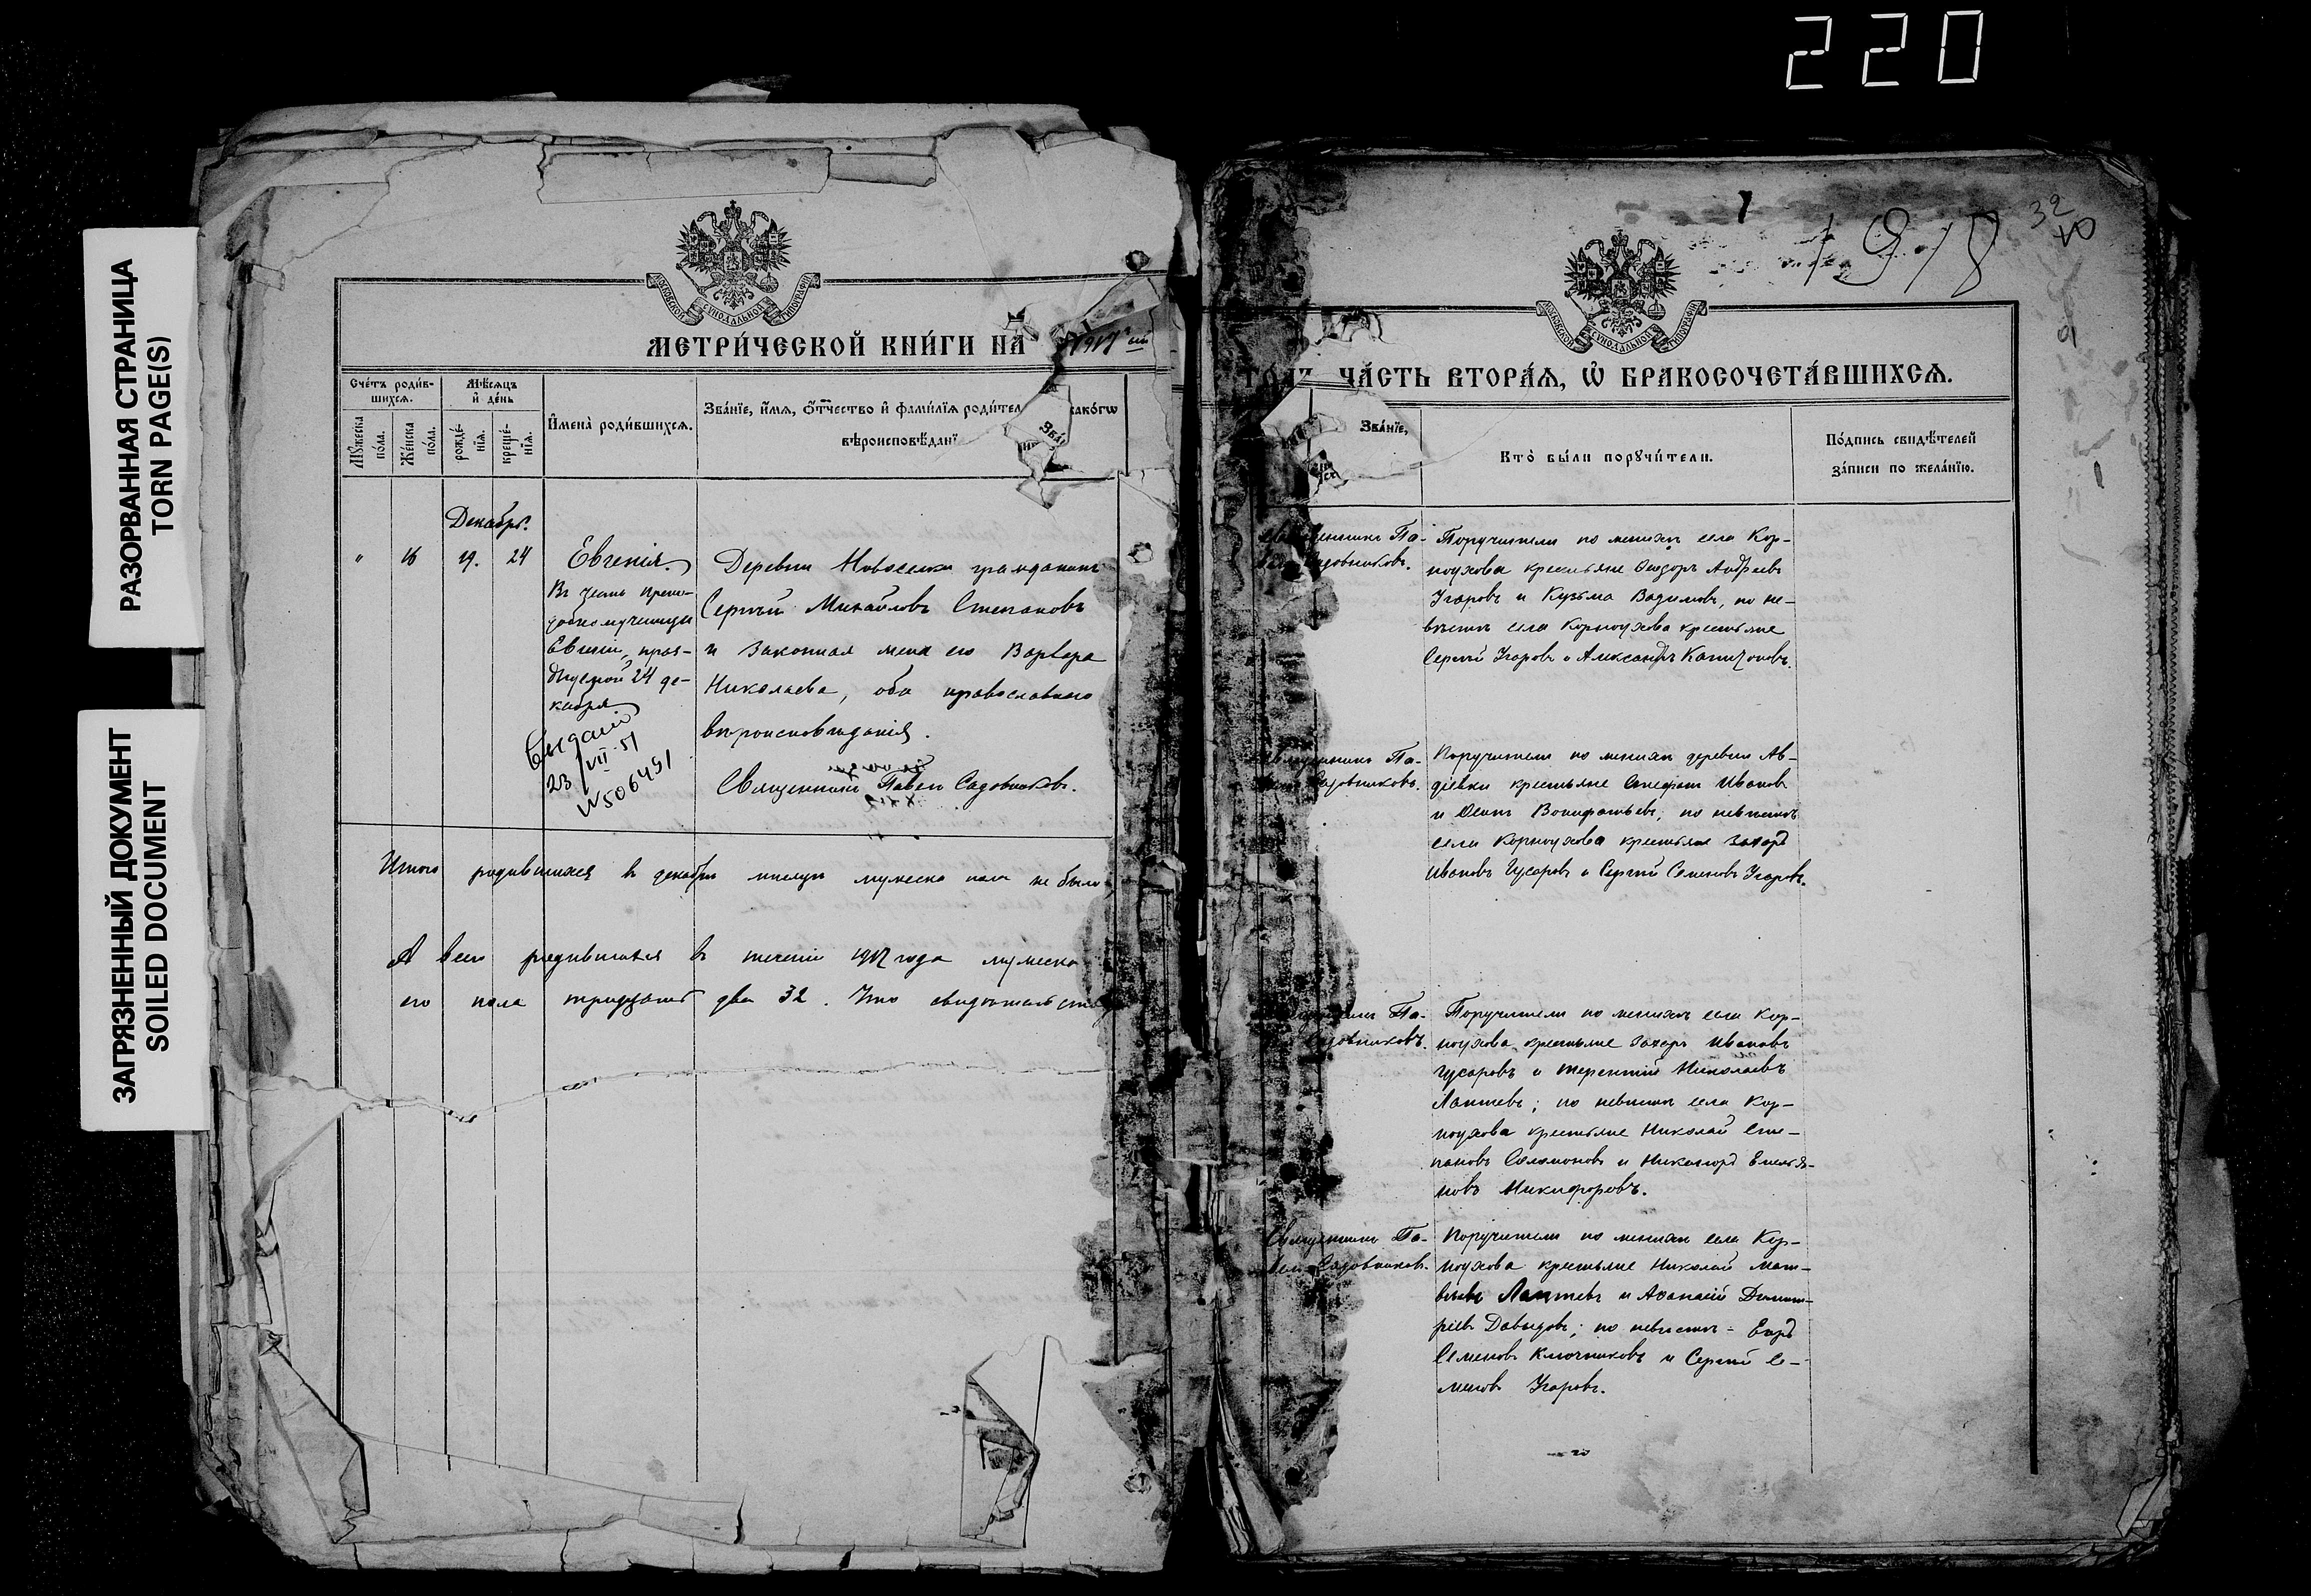 220
РАЗОРВАННАЯ СТРАНИЦА
TORN PAGE(S)
ЗАГРЯЗНЕННЫЙ ДОКУМЕНТ
SOILED DOCUMENT
МОСКОВСКОЙ СѴНОДАЛЬНОЙ ТИПОГРАФІИ
МЕТРИ́ЧЕСКОЙ КНИ́ГИ НА 1917 ый
Сче́тъ роди́в-
шихсѧ.
Мѣ́сѧцъ
и҆ де́нь
Мꙋ́жеска
по́ла.
Же́нска
по́ла.
рожде́-
нїѧ.
креще́-
нїѧ.
И҆мена̀ роди́вшихсѧ.
Зва́нїе, и҆́мѧ, ѻ҆́тчество и҆ фами́лїѧ роди́тел
како́гѡ
вѣроисповѣ́данї
Зва́
Декабрь.
" 16 19. 24 Евгенія.
Въ честь препо-
добномученицы
Евгеніи, праз-
днуемой 24 де-
кабря
Деревни Новоселки гражданинъ
Сергѣй Михайловъ Степановъ
и законная жена его Варвара
Николаева, оба православнаго
вѣроисповѣданія.
Священникъ Павелъ Садовниковъ.
Выдано
23/VII-51
№506491
Итого родившихся въ декабрѣ мѣсяцѣ мужеска пола не было
А всего родившихся въ теченіе 1917 года мужеска
го пола тридцать два 32. Что свидѣтельству
1918
32
МОСКОВСКОЙ СѴНОДАЛЬНОЙ ТИПОГРАФІИ
ЧА́СТЬ ВТОРА́Ѧ, Ѡ҆ БРАКОСОЧЕТА́ВШИХСѦ.
Зва́нїе,
Кто̀ бы́ли порꙋчи́тели.
По́дпись свидѣ́телей
за́писи по жела́нїю.
Священникъ Па-
Садовниковъ.
Поручители по женихѣ села Кор-
ноухова крестьяне Ѳеодоръ Андреевъ
Угаровъ и Кузьма Вадимовъ, по не-
вѣстѣ села Корноухова крестьяне
Сергѣй Угаровъ и Александръ Капитоновъ.
Священникъ Па-
Садовниковъ.
Поручители по женихѣ деревни Ав-
дѣевки крестьяне Стефанъ Ивановъ
и Осипъ Вонифатьевъ, по невѣстѣ
села Корноухова крестьяне Захаръ
Ивановъ Гусаровъ и Сергѣй Семеновъ Угаровъ.
Па-
Садовниковъ.
Поручители по женихѣ села Кор-
ноухова крестьяне Захаръ Ивановъ
Гусаровъ и Терентій Николаевъ
Лаптевъ; по невѣстѣ села Кор-
ноухова крестьяне Николай Сте-
пановъ Соломоновъ и Никаноръ Емелья-
новъ Никифоровъ.
Священникъ Па-
велъ Садовниковъ.
Поручители по женихѣ села Кор-
ноухова крестьяне Николай Мат-
вѣевъ Лаптевъ и Аѳанасій Димит-
ріевъ Давыдовъ; по невѣстѣ - Егоръ
Семеновъ Ключниковъ и Сергѣй Се-
меновъ Угаровъ.